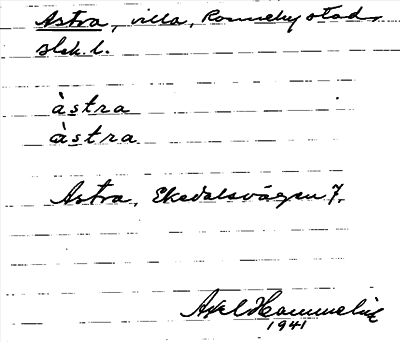 Astra, villa, Ronneby stad,
slsk. l.
àstra
àstra
Astra, Ekedalsvägen 7.
Axel
1941